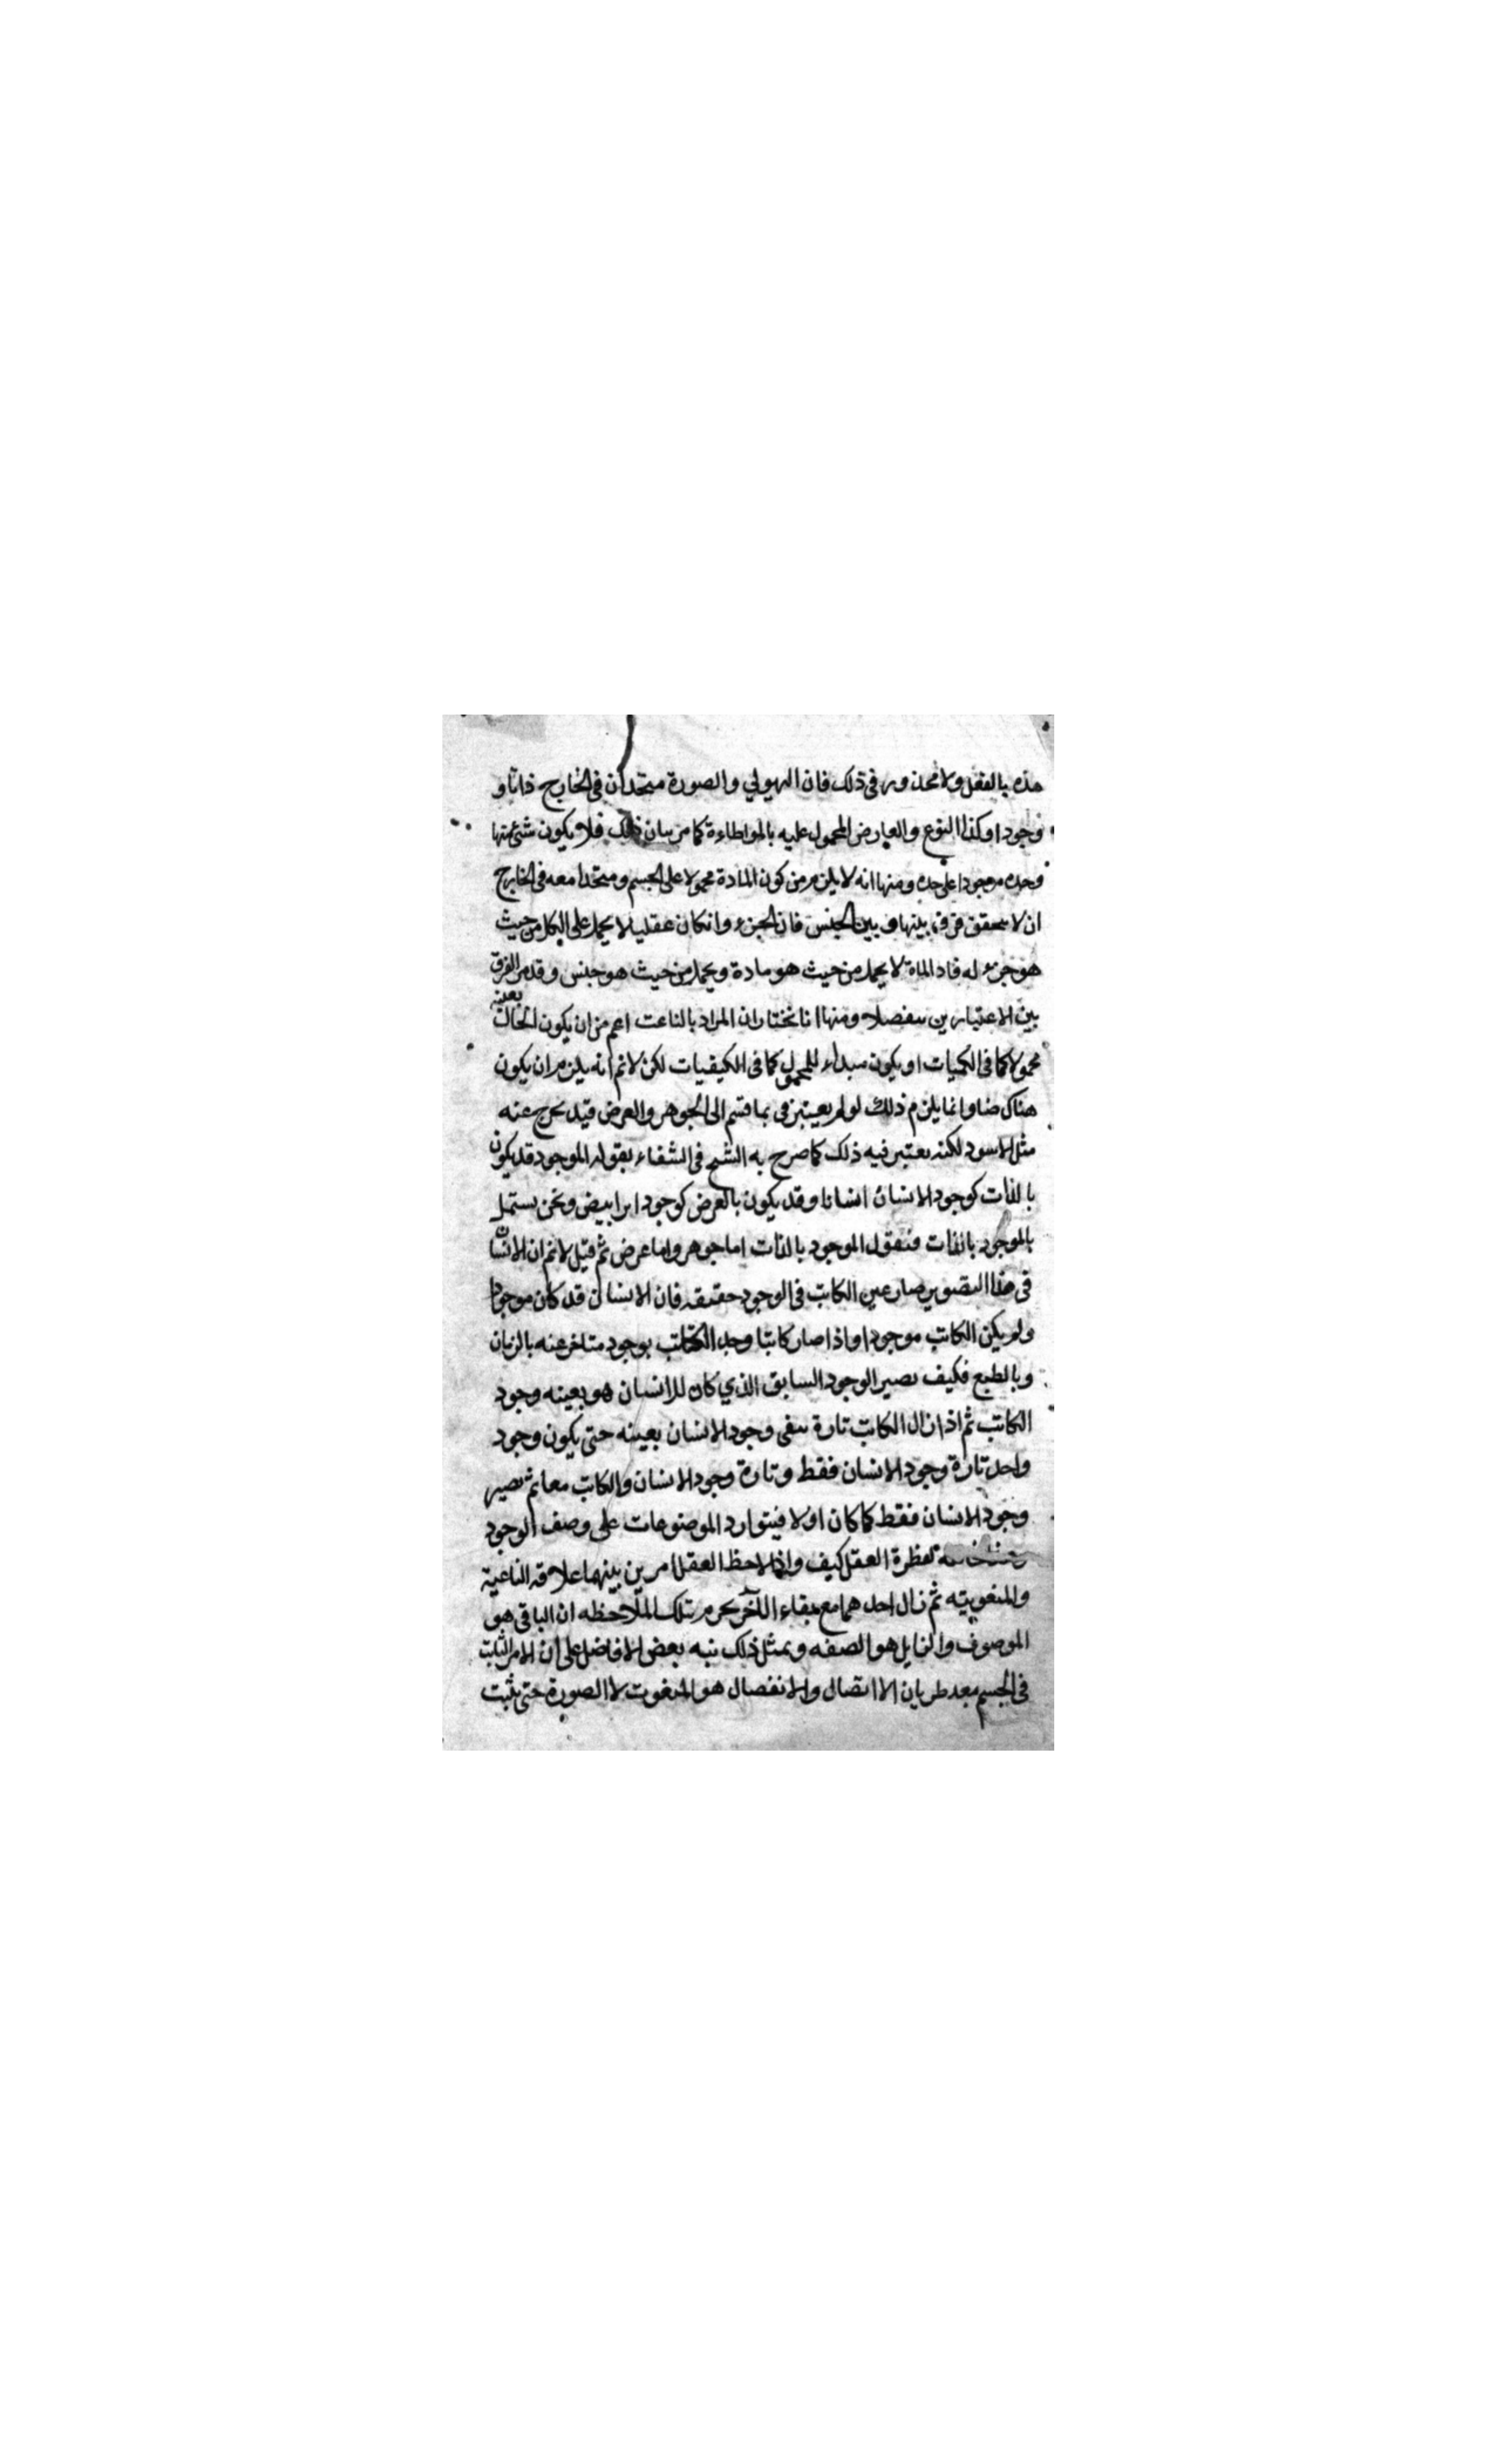 هذه بالفعل ولا محذور فى ذلك فان الهيولي والصورة متحدان فى الخارج ذاتا و
وجودا وكذا النوع والعارض المحمول عليه بالمواطاءة كما مر بيان ذلك فلا يكون شئ منها
وحده موجودا على حده ومنها انه لا يلزم من كون المادة محمولا على الجسم ومتحدا معه فى الخارج
ان لا يتحقق فرق بينها و بين الجنس فان الجزء وانكان عقليا لا يحمل على الكل من حيث
هو جزء له فاد المادة لا يحمل من حيث هو مادة ويحمل من حيث هو جنس وقد مر الفرق
بين الاعتبارين مفصلا ومنها انا نختار ان المراد بالناعت اعم من ان يكون الحال بعينه
محمولا كما فى الكميات او يكون مبداء للمحمول كما فى الكيفيات لكن لانم انه يلزم ان يكون
هناك وانما يلزم ذلك لو لم يعتبر فى ما قسم الى الجوهر والعرض قيد يخرج عنه
مثل الاسود لكنه يعتبر فيه ذلك كما صرح به الشيخ فى الشفاء بقوله الموجود قد يكون
بالذات كوجود الانسان انسانا وقد يكون بالعرض كوجود ابيض ونحن نستمل
بالموجود بالذات فنقول الموجود بالذات اما جوهر واما عرض ثم قيل لانم ان الانسان
فى هذا التصوير صار عين الكاتب فى الوجود حقيقه فان الانسان قد كان موجودا
ولم يكن الكاتب موجودا واذا صار كاتبا وجد الكاتب بوجود متاخر عنه بالزمان
وبالطبع فكيف يصير الوجود السابق الذي كان للانسان هو بعينه وجود
الكاتب ثم اذا زال الكاتب تارة يبقى وجود الانسان بعينه حتى يكون وجود
واحد تارة وجود الانسان فقط وتارة وجود الانسان والكاتب معا ثم يصير
وجود الانسان فقط كما كان اولا فيتوارد الموضوعات على وصف الوجود
فطرة العقل كيف واذا لاحظ العقل امرين بينهما علاقه الناعتية
والمنعوتيه ثم زال احدهما مع بقاء الآخر يجزم بتلك الملاحظه ان الباقى هو
الموصوف والزايل هو الصفه وبمثل ذلك نبه بعض الافاضل على ان الامر الثابت
فى الجسم بعد طريان الاتصال والانفصال هو المنعوت لا الصورة حتى يثبت